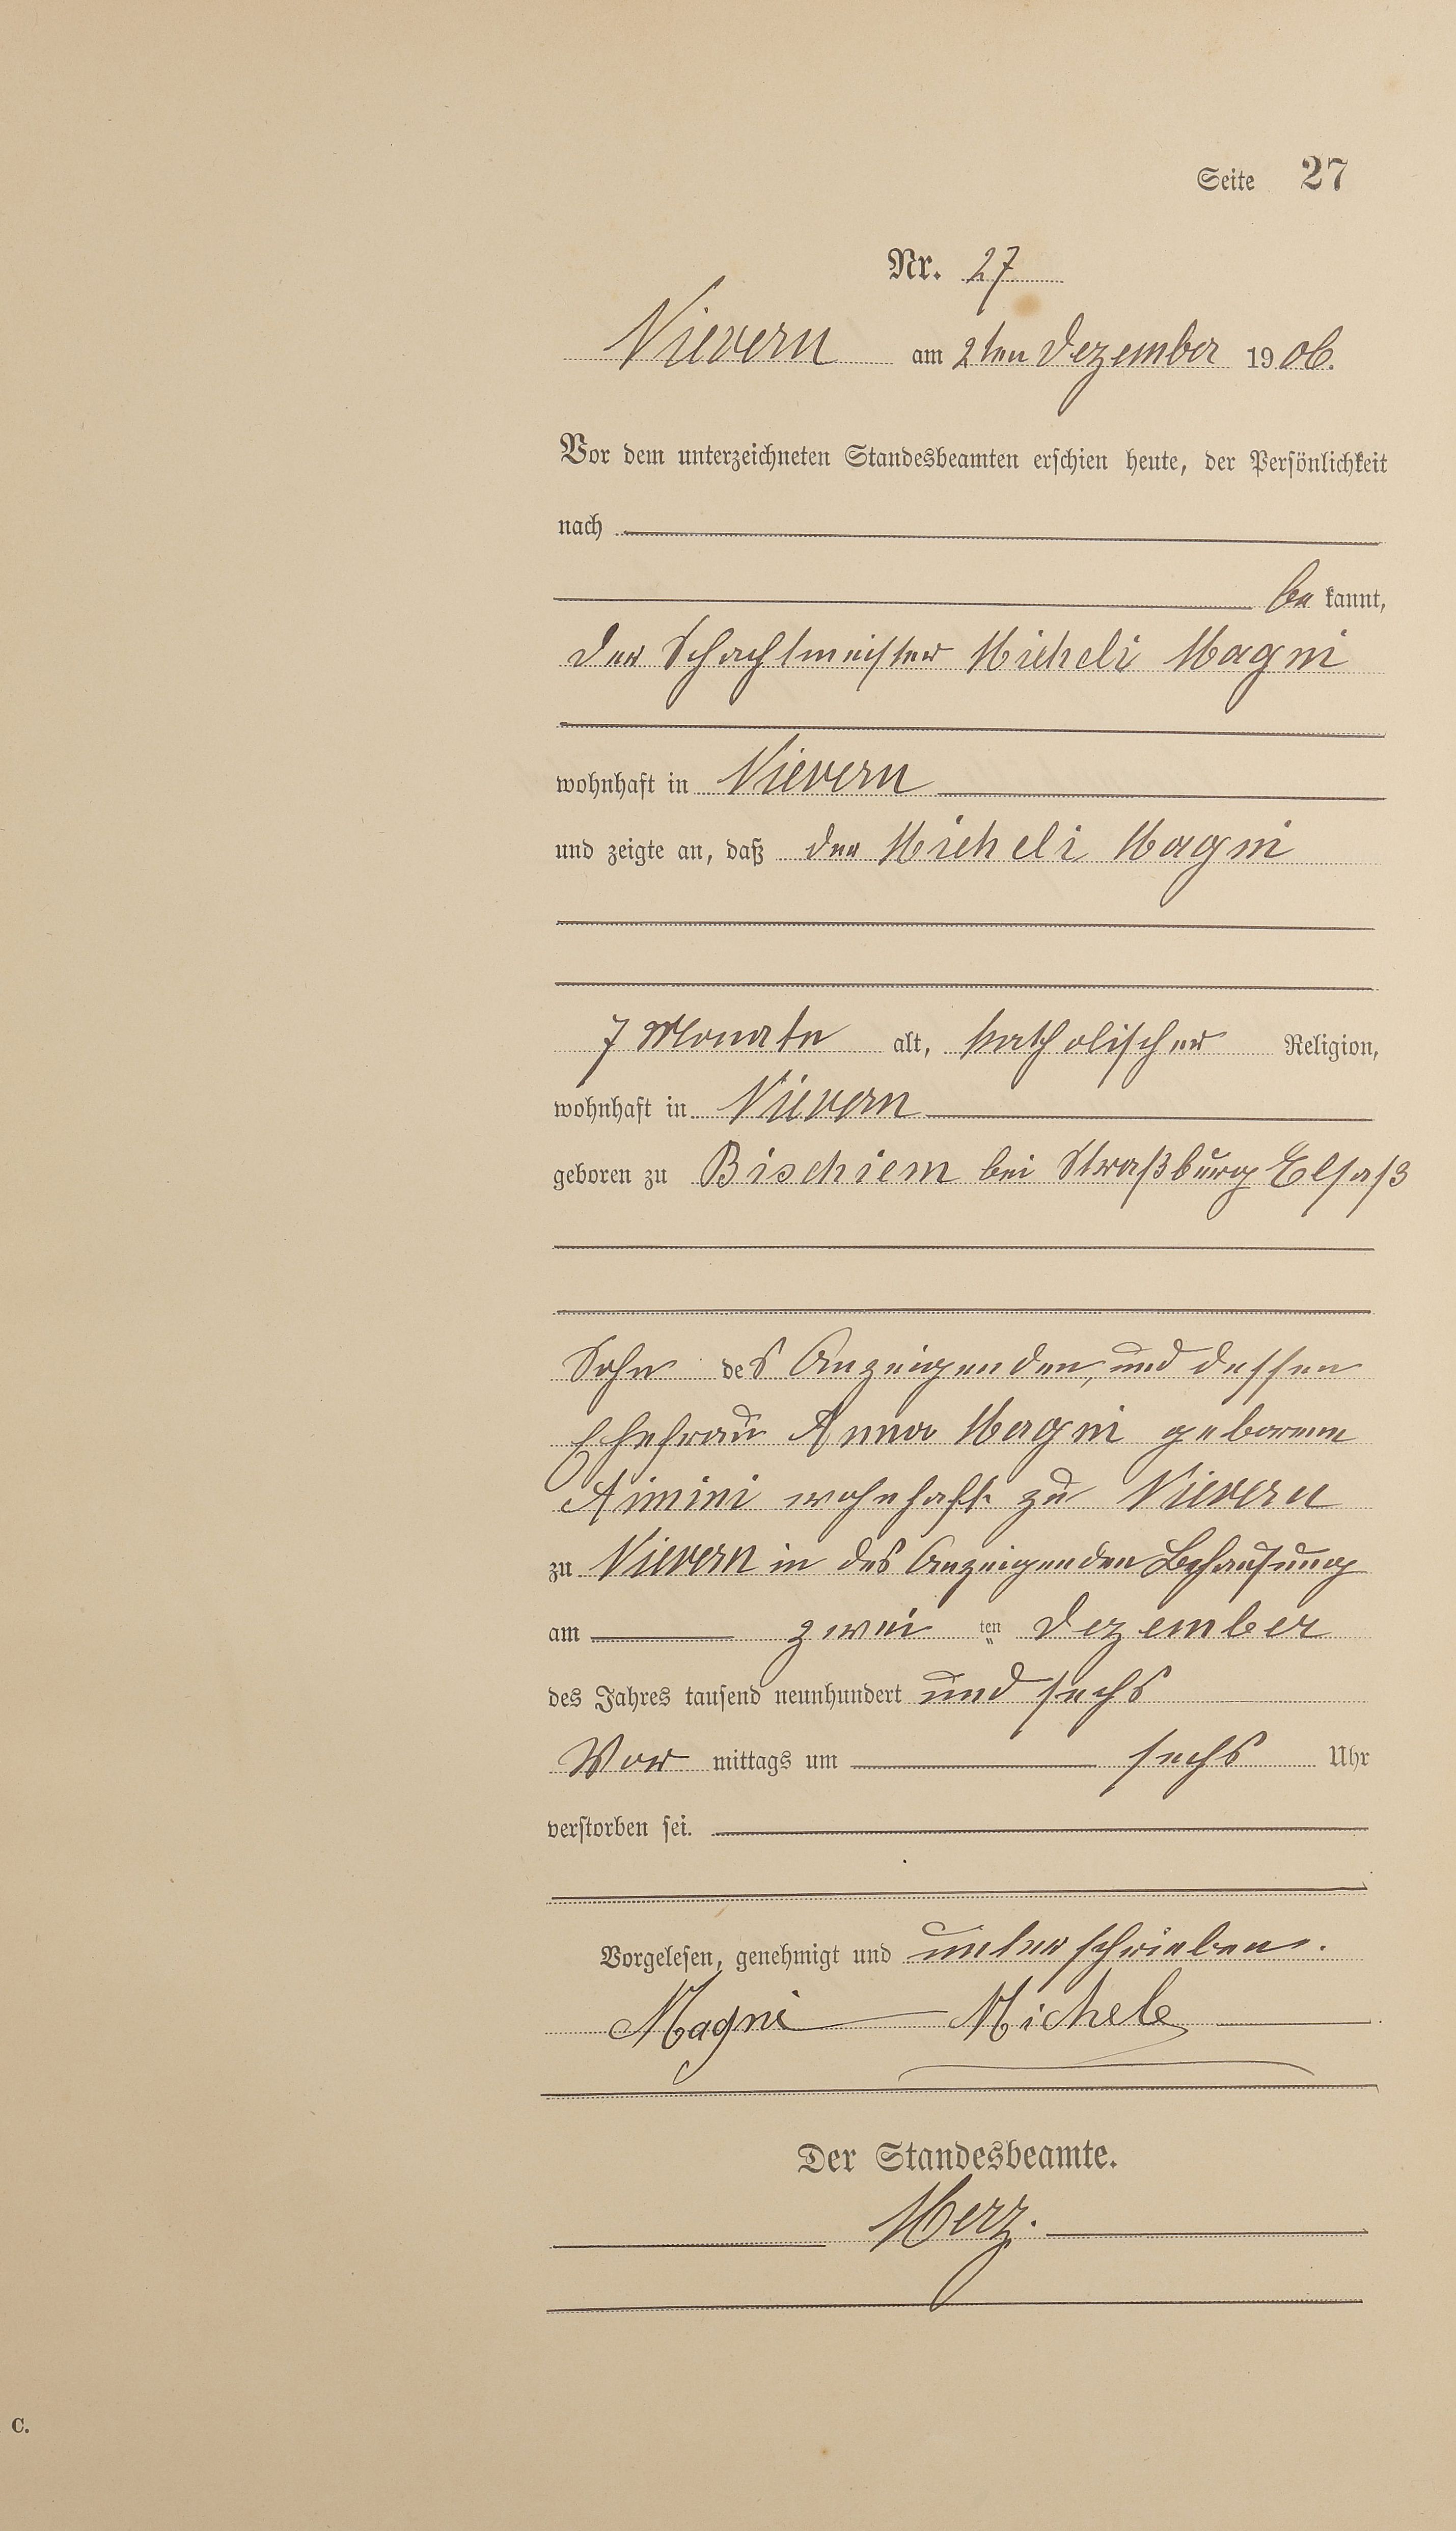 Seite 27
Nr. 27
Nievern am 2ten Dezember 1906.
Vor dem unterzeichneten Standesbeamten erschien heute, der Persönlichkeit
nach
be kannt,
der Schachtmeister Micheli Magni
wohnhaft in Nievern
und zeigte an, daß der Micheli Magni
7 Monate alt, katholischer Religion,
wohnhaft in Nievern
geboren zu Bischiem bei Straßburg Elsaß
Sohn des Anzeigenden, und dessen
Ehefrau Anna Magni geborene
Aimini wohnhaft zu Nievern
zu Nievern in des Anzeigenden Behausung
am zwei ten Dezember
des Jahres tausend neunhundert und sechs
Vor mittags um sechs Uhr
verstorben sei.
Vorgelesen, genehmigt und unterschrieben.
Magni Michele
Der Standesbeamte.
Merz.
C.